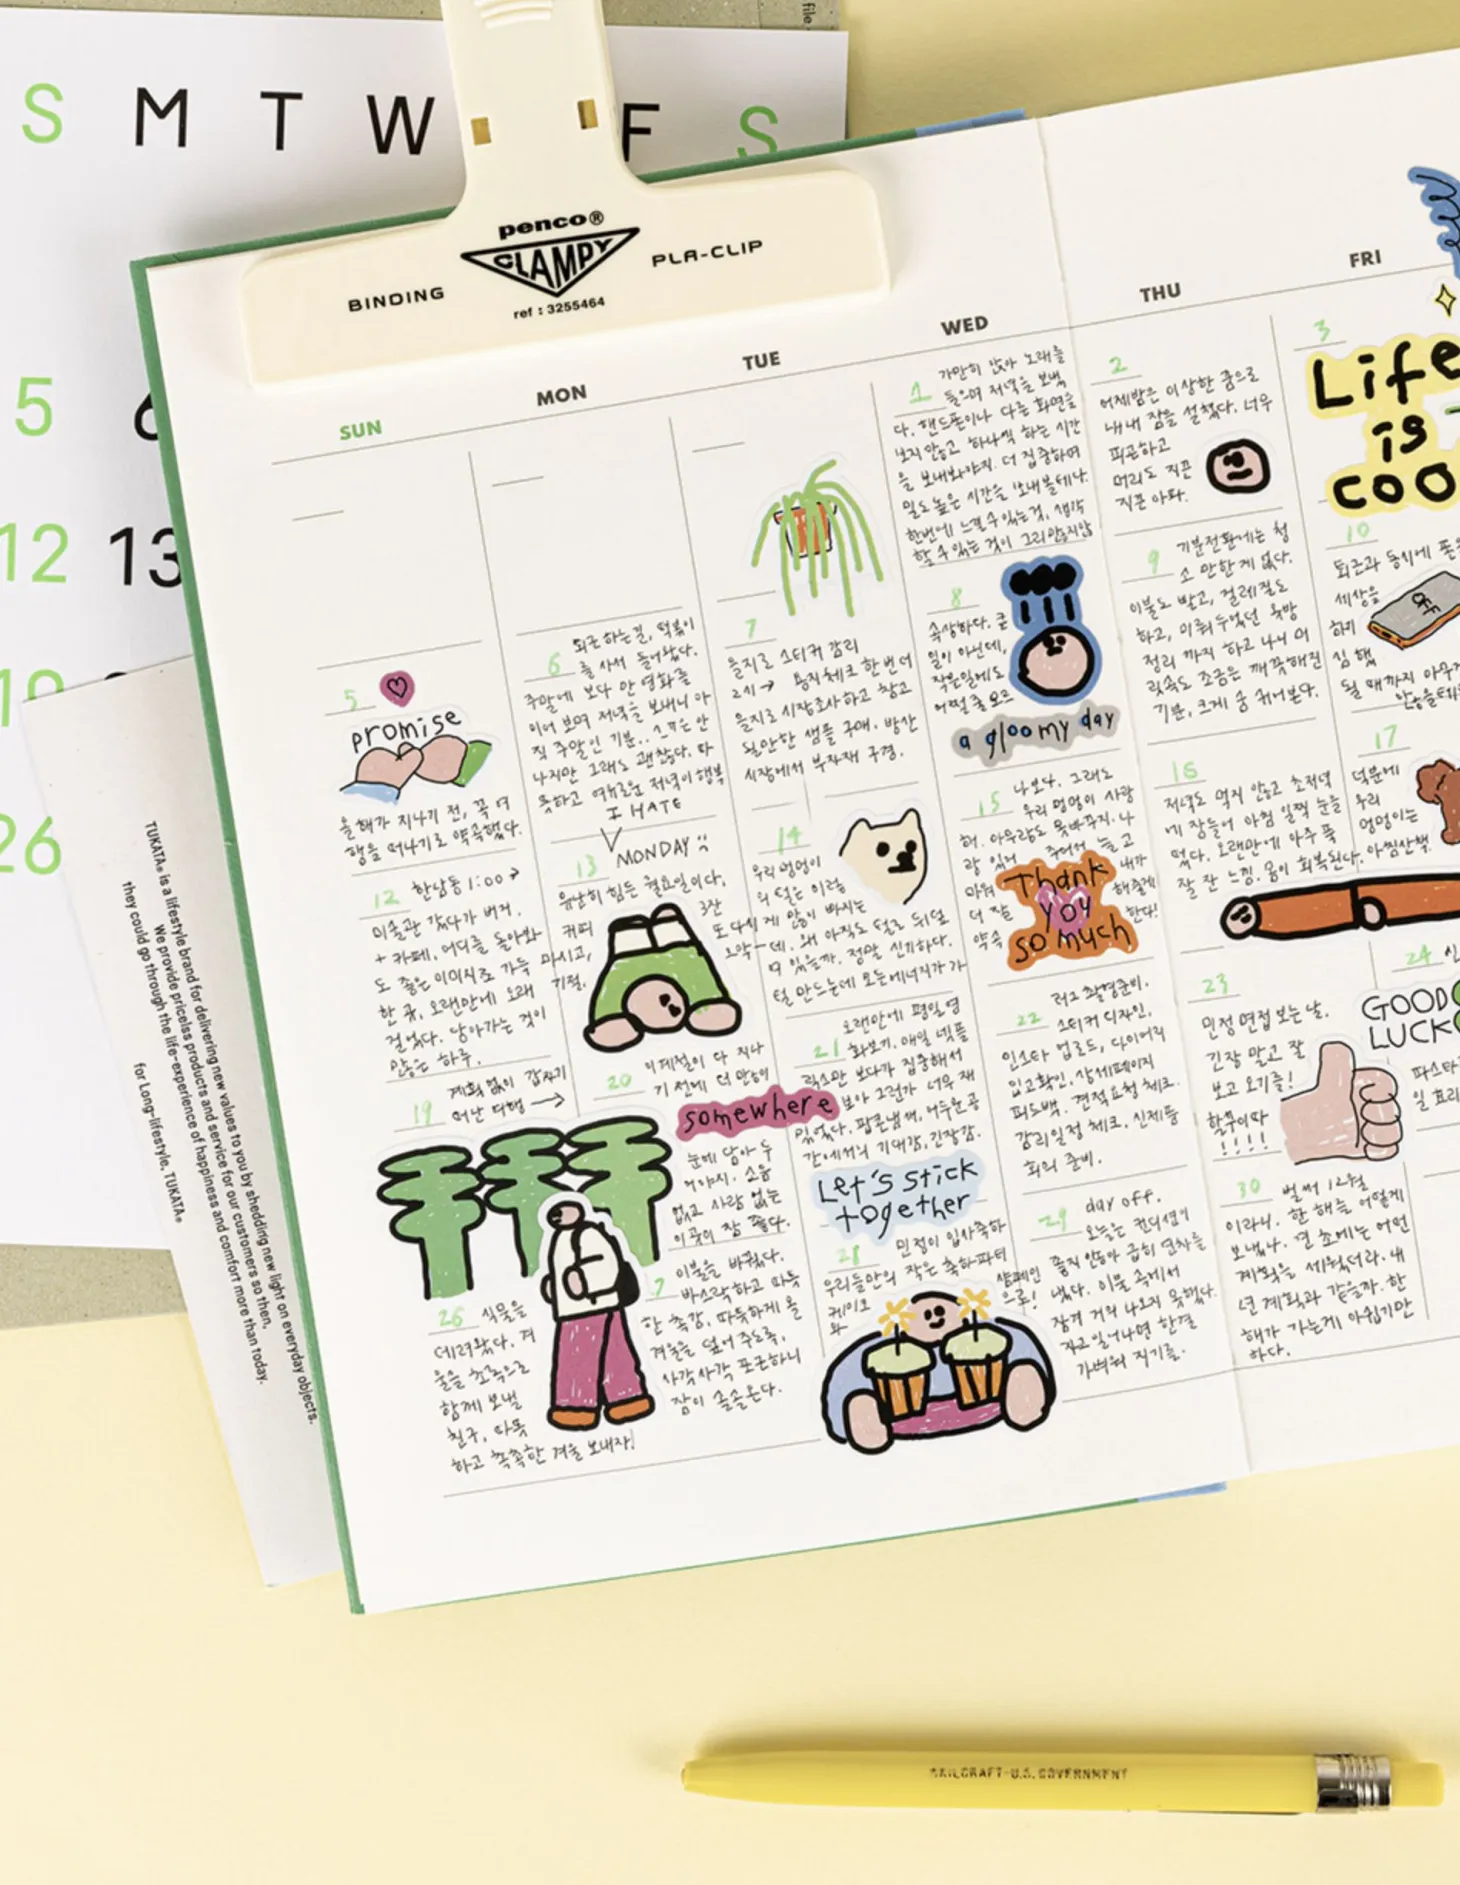 file.
S M T W F S
5 6
12 13
19
26
penco®
CLAMPY
BINDING
PLA-CLIP
ref : 3255464
SUN
MON
TUE
WED
THU
FRI
1
가만히 앉아 노래를
들으며 저녁을 보냈
다. 핸드폰이나 다른 화면을
보지 않고 하나씩 하는 시간
을 보내봐야지. 더 집중하며
밀도 높은 시간을 보내볼테니.
한번에 느낄 수 있는 것, 생각
할 수 있는 것이 그리 많지 않
2
어제밤은 이상한 꿈으로
내내 잠을 설쳤다. 너무
피곤하고
머리도 지끈
지끈 아파.
3
Life
is
COO
5
promise
올해가 지나기 전, 꼭 여
행을 떠나기로 약속했다.
6
퇴근 하는 길, 떡볶이
를 사서 들어왔다.
주말에 보다 만 영화를
이어 보며 저녁을 보내니 아
직 주말인 기분..
나지만 그래도 괜찮다. 따
뜻하고 여유로운 저녁이 행복
I HATE
MONDAY
7
을지로 스티커 감리
2시→ 용지체크 한번 더
을지로 시장조사하고 참고
될만한 샘플 구매. 방산
시장에서 부자재 구경.
8
속상하다. 큰
일이 아닌데,
작은일에도
어쩔 줄 모르
a gloomy day
9
기분전환에는 청
소 만한 게 없다.
이불도 빨고, 걸레질도
하고, 미뤄두었던 옷방
정리 까지 하고 나니 머
릿속도 조금은 깨끗해진
기분, 크게 숨 쉬어본다.
10
퇴근과 동시에 폰을
세상을
하지
심 했
OFF
될 때까지 아무
12
한남동 1:00→
미술관 갔다가 버거.
+ 카페. 어디를 돌아봐
도 좋은 이미지로 가득
한 곳, 오랜만에 오래
걸었다. 남아가는 것이
많은 하루.
13
유난히 힘든 월요일이다.
커피 3잔
마시고, 또 다시
기절.
14
우리 멍멍이
의 털은 이렇
게 많이 빠지는
데. 왜 아직도 털로 뒤덮
여 있을까. 정말 신기하다.
털 만드는데 모든에너지가 가
15
나보다. 그래도
우리 멍멍이 사랑
해. 아무랑도 못바꾸지. 나
랑 있어 주어서 늘 고
마워 내가
더 잘 해줄게
약속 한다!
Thank
you
so much
16
저녁도 먹지 않고 초저녁
에 잠들어 아침 일찍 눈을
떴다. 오랜만에 아주 푹
잘 잔 느낌. 몸이 회복된다.
17
덕분에
우리
멍멍이는
아침산책.
19
계획 없이 갑자기
떠난 여행 →
20
이 계절이 다 지나
기 전에 더 많이
somewhere
눈에 담아 두
어야지. 소음
없고 사람 없는
이곳이 참 좋다.
21
오랜만에 평일 영
화보기. 매일 넷플
릭스만 보다가 집중해서
보아 그런가 너무 재
있었다. 팝콘냄새, 어두운 공
간에서의 기대감, 긴장감.
Let's stick
together
22
로그 촬영준비.
스티커 디자인.
인스타 업로드, 다이어리
입고확인. 상세페이지
피드백. 견적요청 체크.
감리일정 체크. 신제품
회의 준비.
23
민정 면접 보는 날.
긴장 말고 잘
보고 오기를!
할 수 있다
!!!!
24
GOOD
LUCK
파스타
일 요리
26
식물을
데려왔다. 겨
울을 초록으로
함께 보낼
친구, 따뜻
하고 촉촉한 겨울 보내자!
7
이불을 바꿨다.
바스락하고 따뜻
한 촉감, 따뜻하게 올
겨울을 덮어 주도록,
사각사각 포근하니
잠이 솔솔온다.
28
민정이 입사축하
우리들만의 작은 축하파티
케이크
와
샴페인
으로!
29
day off.
오늘은 컨디션이
좋지 않아 급히 연차를
냈다. 이불 속에서
잠겨 거의 나오지 못했다.
자고일어나면 한결
가벼워 지기를.
30
벌써 12월
이라니. 한 해를 어떻게
보냈나. 연 초에는 어떤
계획을 세웠더라. 내
년 계획과 같을까. 한
해가 가는게 아쉽기만
하다.
TUKATA® is a lifestyle brand for delivering new values to you by shedding new light on everyday objects.
We provide priceless products and service for our customers so then,
they could go through the life-experience of happiness and comfort more than today.
for Long-lifestyle, TUKATA®
SKILCRAFT-U.S. GOVERNMENT